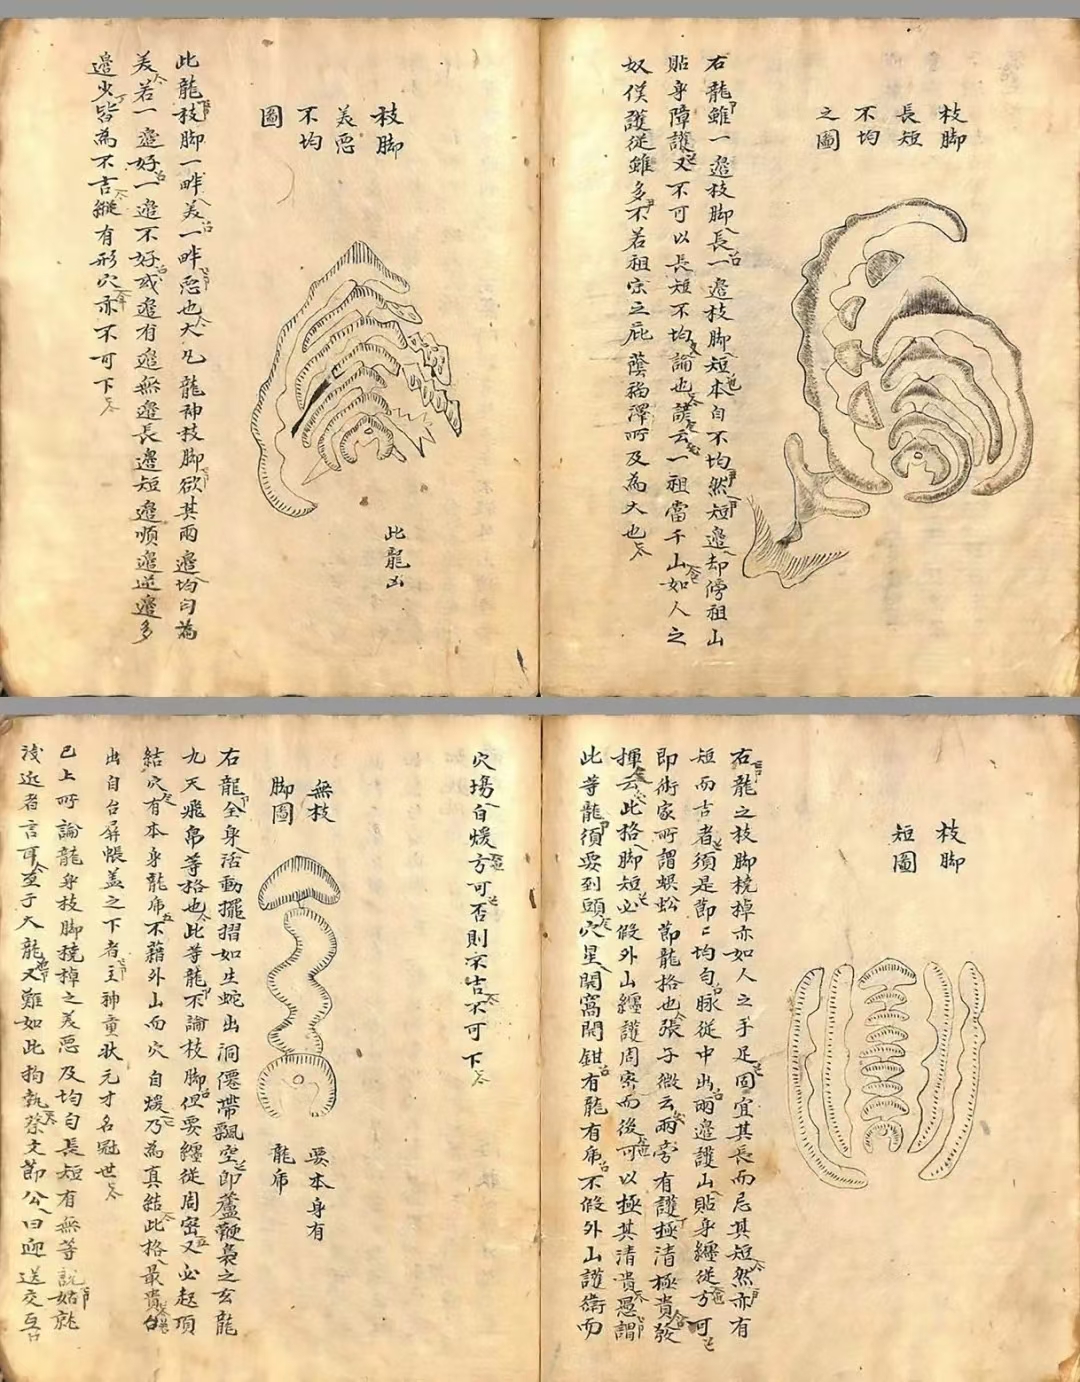 枝脚
長短
不均
之圖
右龍雖一邉枝脚長一邉枝脚短本自不均然短邉却傍祖山
貼身障護又不可以長短不均論也諺云一祖當千山如人之
奴僕護從雖多不若祖宗之庇蔭福澤所及為大也
枝脚
美惡
不均
圖
此龍凶
此龍枝脚一畔美一畔惡也大凡龍神枝脚欲其兩邉均匀為
美若一邉好一邉不好或邉有邉無邉長邉短邉順邉逆邉多
邉少皆為不吉縱有形穴亦不可下
枝脚
短圖
右龍之枝脚橈棹亦如人之手足固宜其長而忌其短然亦有
短而古者須是節〻均匀脉從中出兩邉護山貼身纏從方可
即術家所謂蜈蚣節龍格也張子微云兩旁有護極清極貴發
揮云此格脚短必假外山纏護周宻而後可以極其清貴愚謂
此等龍須要到頭穴星開窩開鉗有龍有虎不假外山護衛而
穴塲自煖方可否則不吉不可下
無枝
脚圖
要本身有
龍虎
右龍全身活動擺摺如生蛇出洞僊帶飄空即蘆鞭裊之玄龍
九天飛帛等格也此等龍不論枝脚但要纏從周宻又必起頂
結穴有本身龍虎不藉外山而穴自煖乃為真結此格最貴
出自台屏帳盖之下者主神童狀元才名冠世
已上所論龍身枝脚橈棹之美惡及均匀長短有無等說姑就
淺近者言耳至于大龍又難如此拘執蔡文節公曰迎送交互